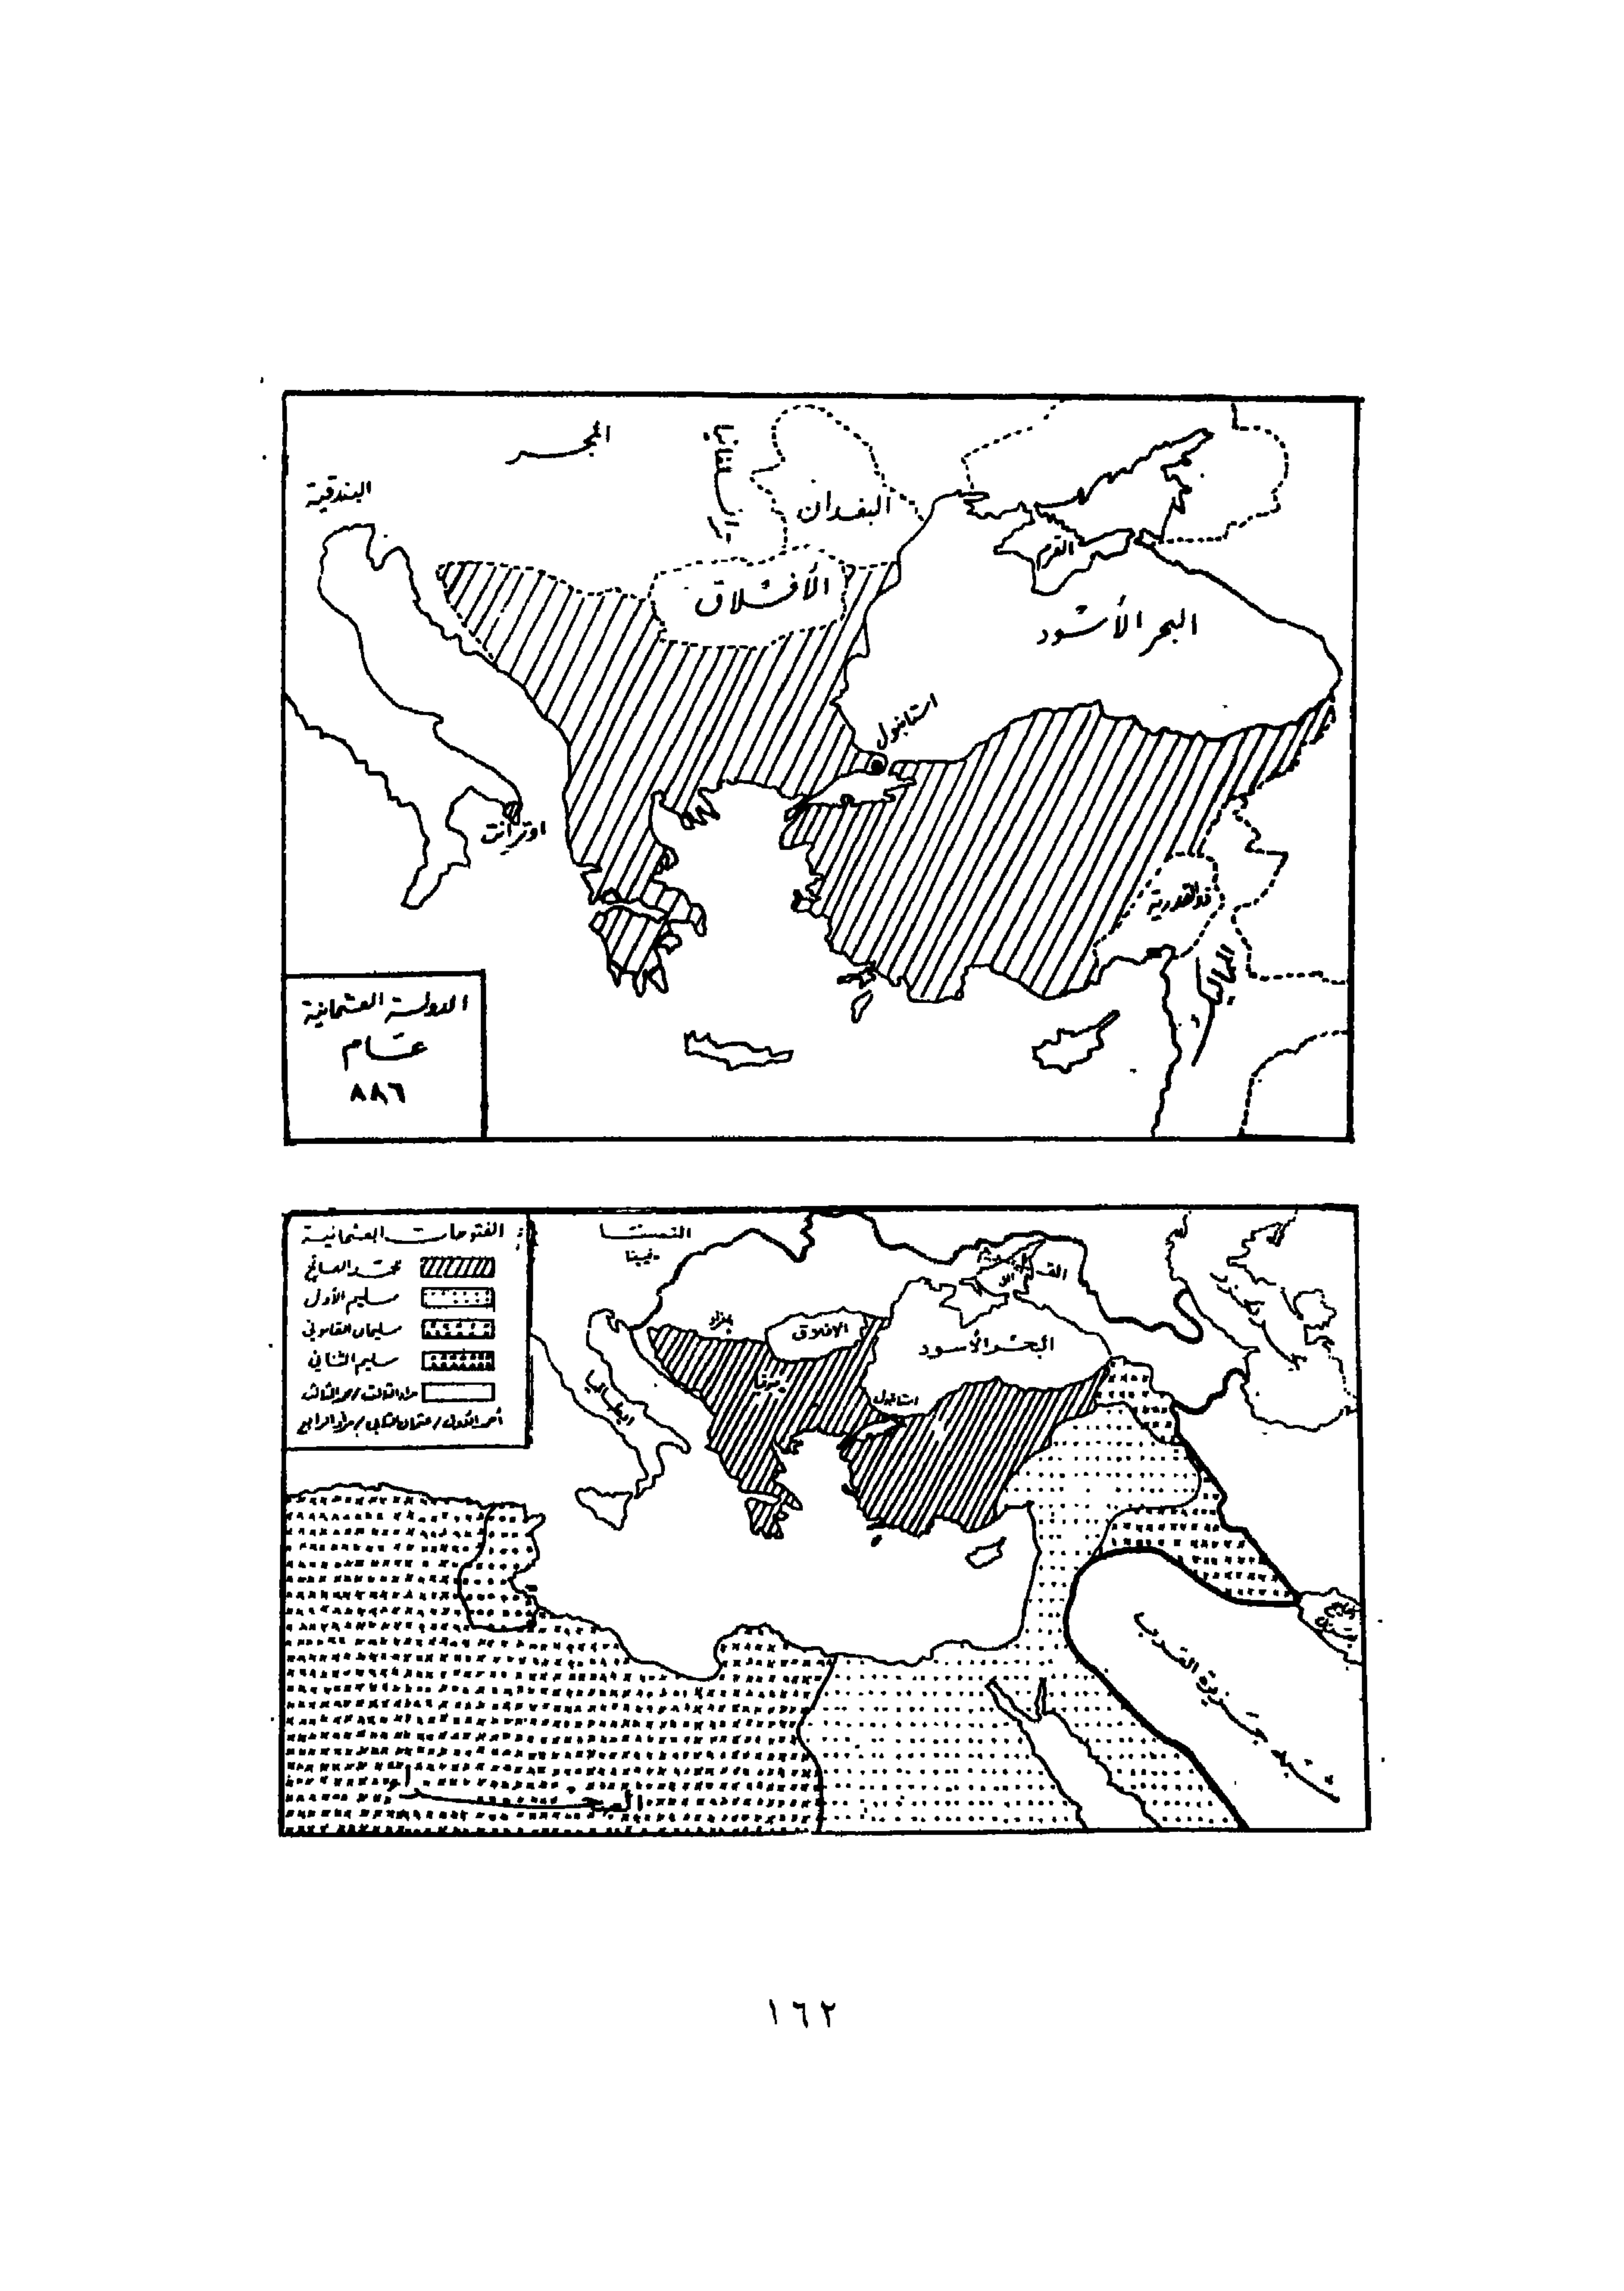 المجر
البندقية
البغدان
القرم
الأفلاق
البحر الأسود
استانبول
اوترانت
ذو القدرية
المماليك
الدولة العثمانية
عام
٨٨٦
الفتوحات العثمانية
محمد الفاتح
سليم الأول
سليمان القانوني
سليم الثاني
مراد الثالث / محمد الثالث
أحمد الأول / عثمان الثاني / مراد الرابع
النمسا
فيينا
بلغراد
الافلاق
البحر الأسود
صوفيا
استانبول
ايطاليا
بحر الخزر
جزيرة العرب
١٦٢